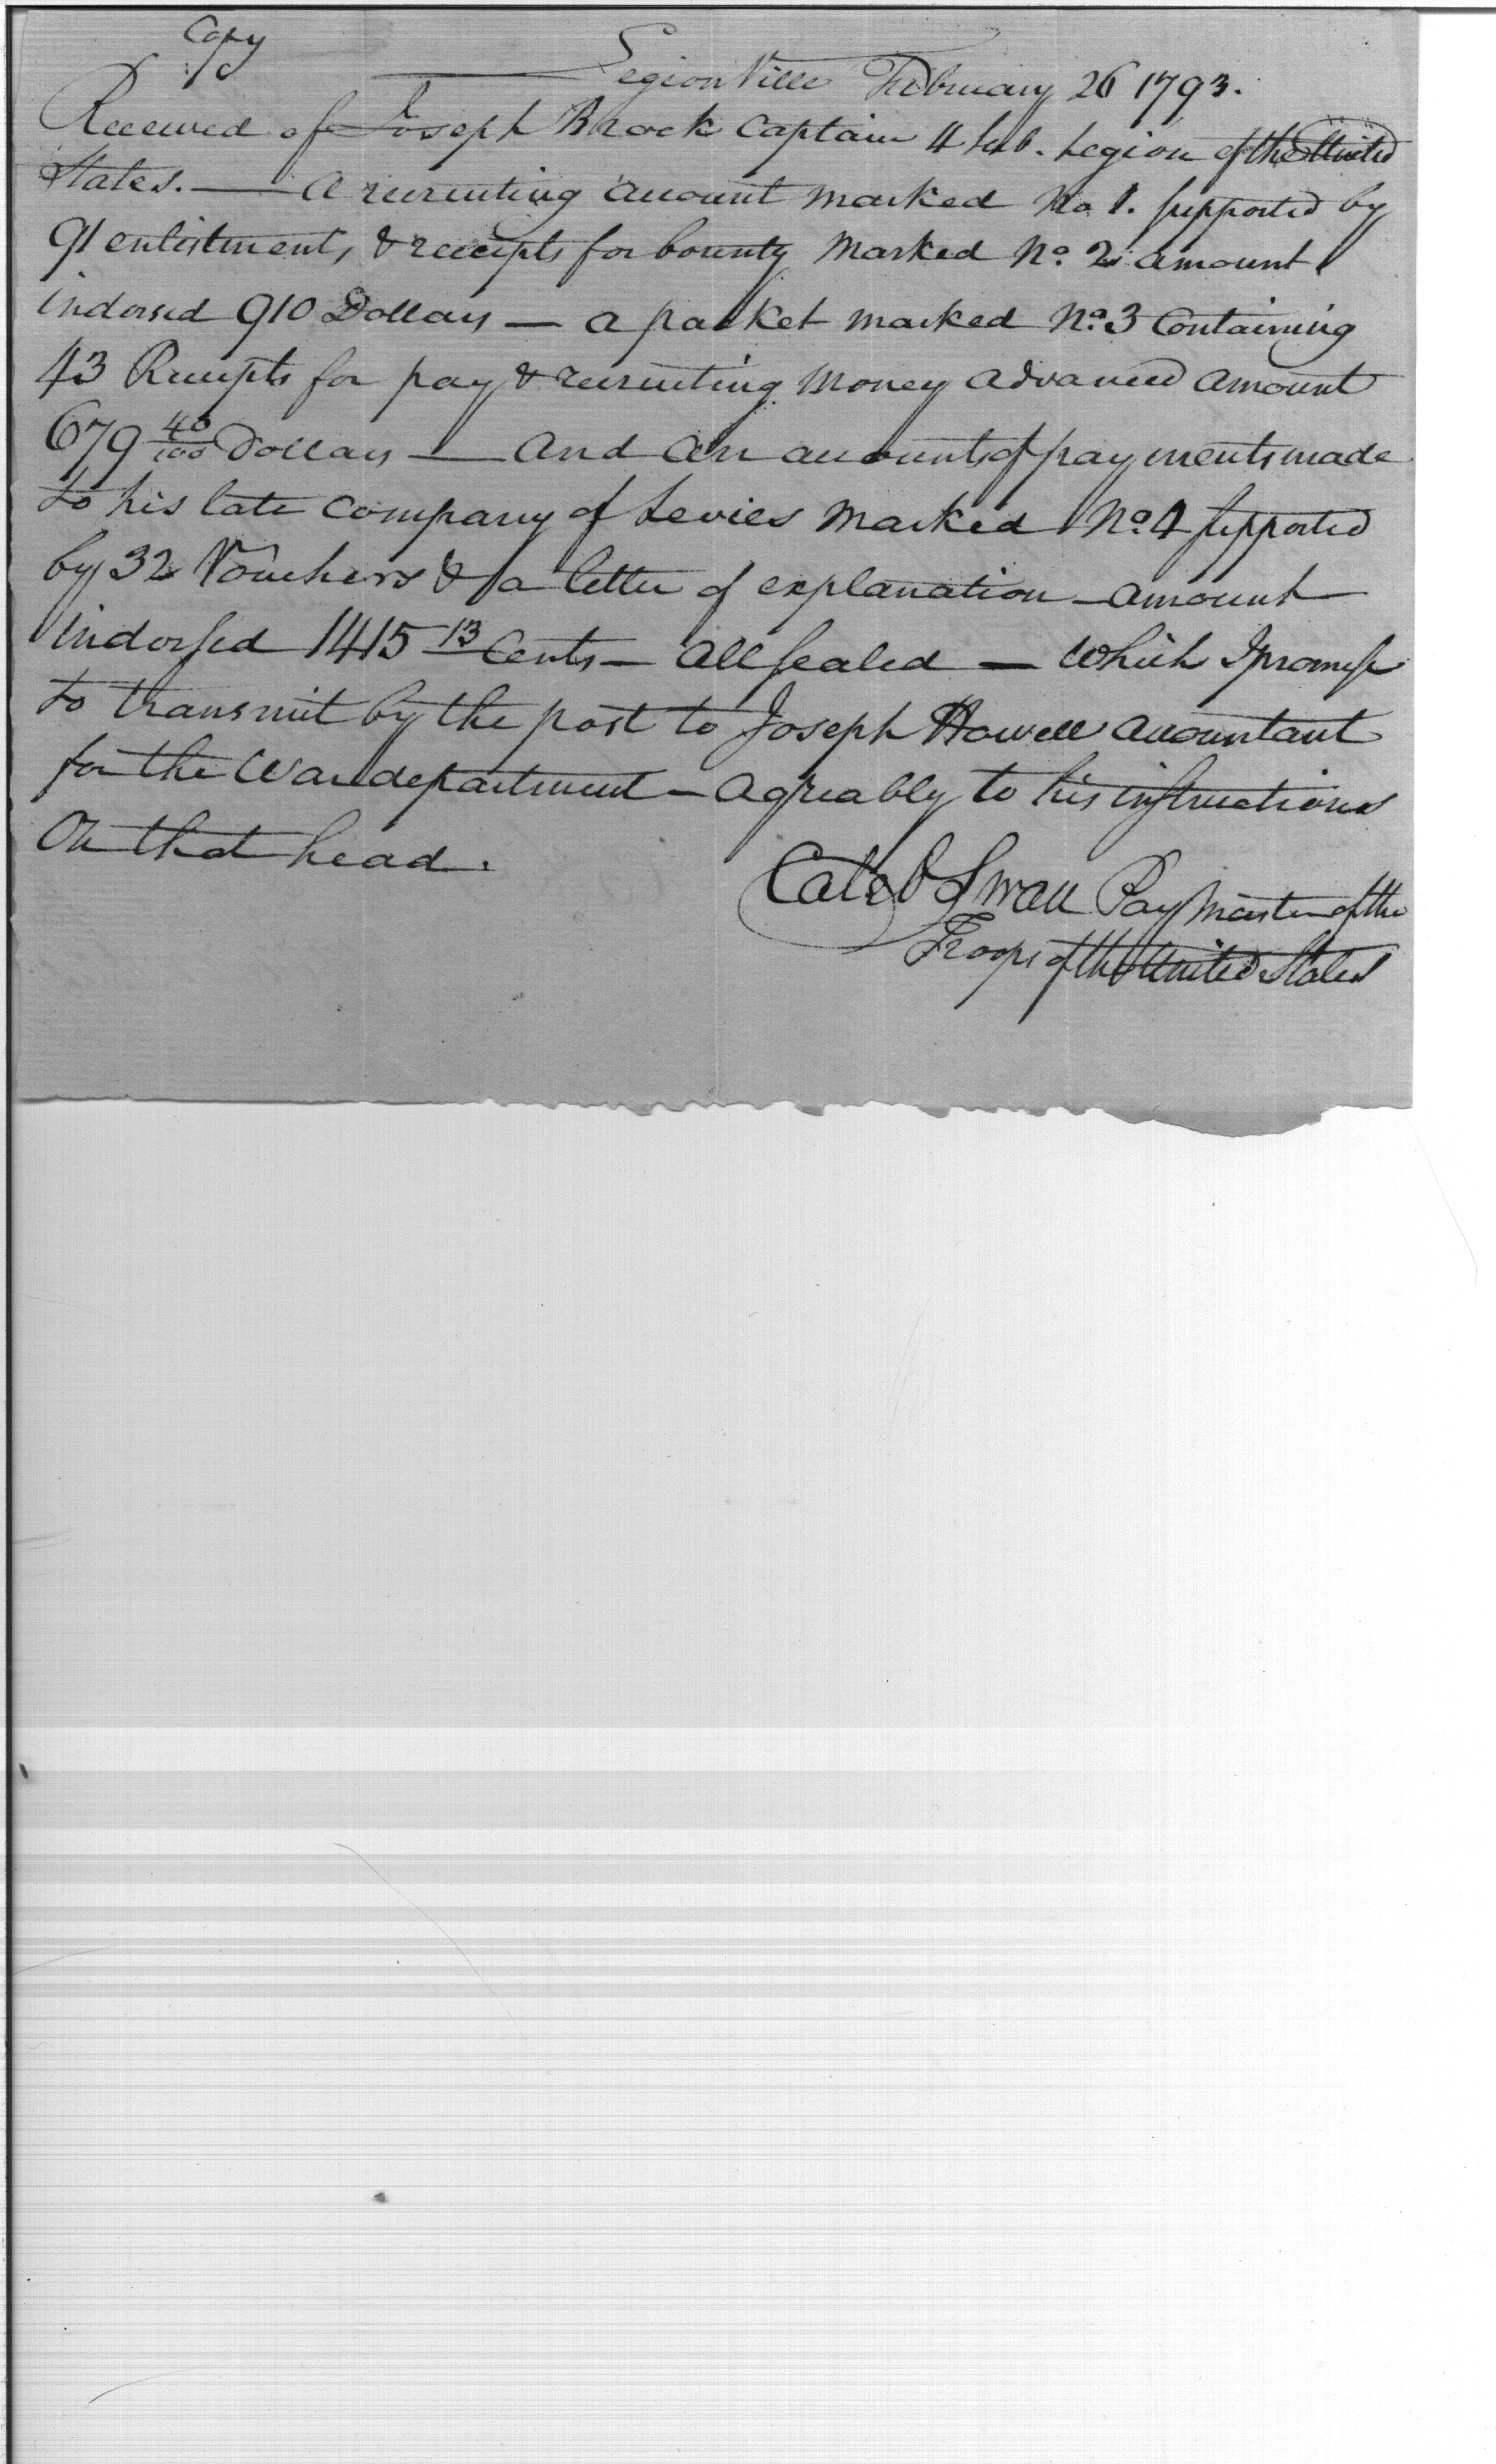 Copy
Legion Ville February 26 1793.
Received of Joseph Brock Captain 4 Sub. Legion of the United
States. — A recruiting account marked No 1. supported by
91 enlistments, & receipts for bounty marked No. 2 amount
indorsed 910 Dollars — a packet marked No. 3 Containing
43 Receipts for pay & recruiting money advanced amount
679 40/100 Dollars — And An accounts of payments made
to his late company of Levies marked No. 4 supported
by 32 Vouchers & a letter of explanation — amount
indorsed 1415 13 Cents — All sealed — which I promise
to transmit by the post to Joseph Howell accountant
for the War department — agreably to his instructions
On that head.
Caleb Swan Pay Master of the
Troops of the United States